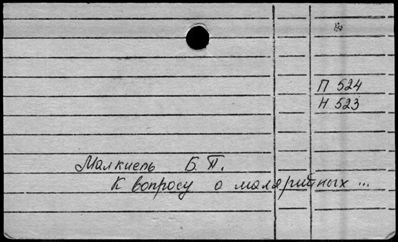 П 524
Н 523
Малкиель Б. П.
К вопросу о малярийных ...